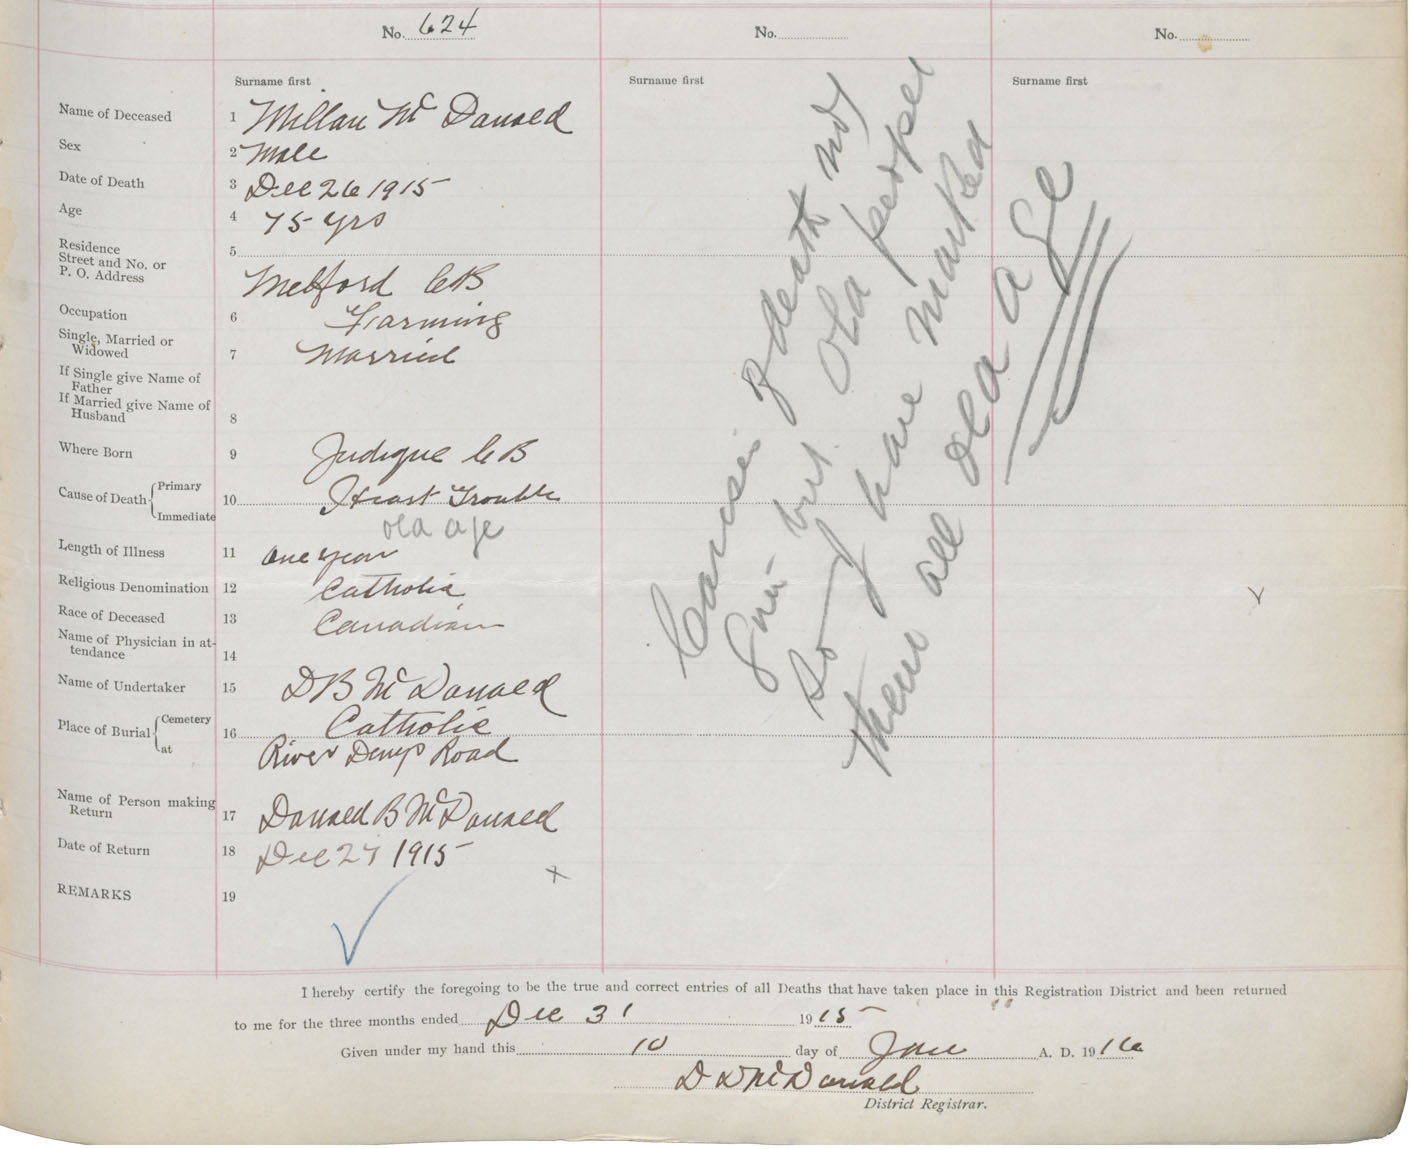 No. 624
No.
No.
Surname first
Surname first
Surname first
Name of Deceased 1 Millan Mc Donald
Sex 2 Male
Date of Death 3 Dec 26 1915
Age 4 75 yrs
Residence
Street and No. or
P. O. Address 5
Melford CB
Occupation 6 Farming
Single, Married or
Widowed 7 Married
If Single give Name of
Father
If Married give Name of
Husband 8
Where Born 9 Judique CB
Cause of Death { Primary
Immediate 10 Heart Trouble
old age
Length of Illness 11 one year
Religious Denomination 12 Catholic
Race of Deceased 13 Canadian
Name of Physician in at-
tendance 14
Name of Undertaker 15 D B Mc Donald
Place of Burial { Cemetery
at 16 Catholic
River Denys Road
Name of Person making
Return 17 Donald B McDonald
Date of Return 18 Dec 27 1915
REMARKS 19
Causes of death not
given but old people
so I have marked
them all old age
I hereby certify the foregoing to be the true and correct entries of all Deaths that have taken place in this Registration District and been returned
to me for the three months ended Dec 31 1915
Given under my hand this 10 day of Jan A. D. 1916
D D McDonald
District Registrar.